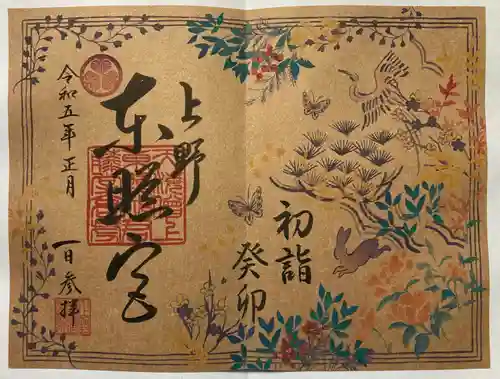 初詣
初詣
癸卯
上野
東照宮
令和五年 正月
一日 参拝